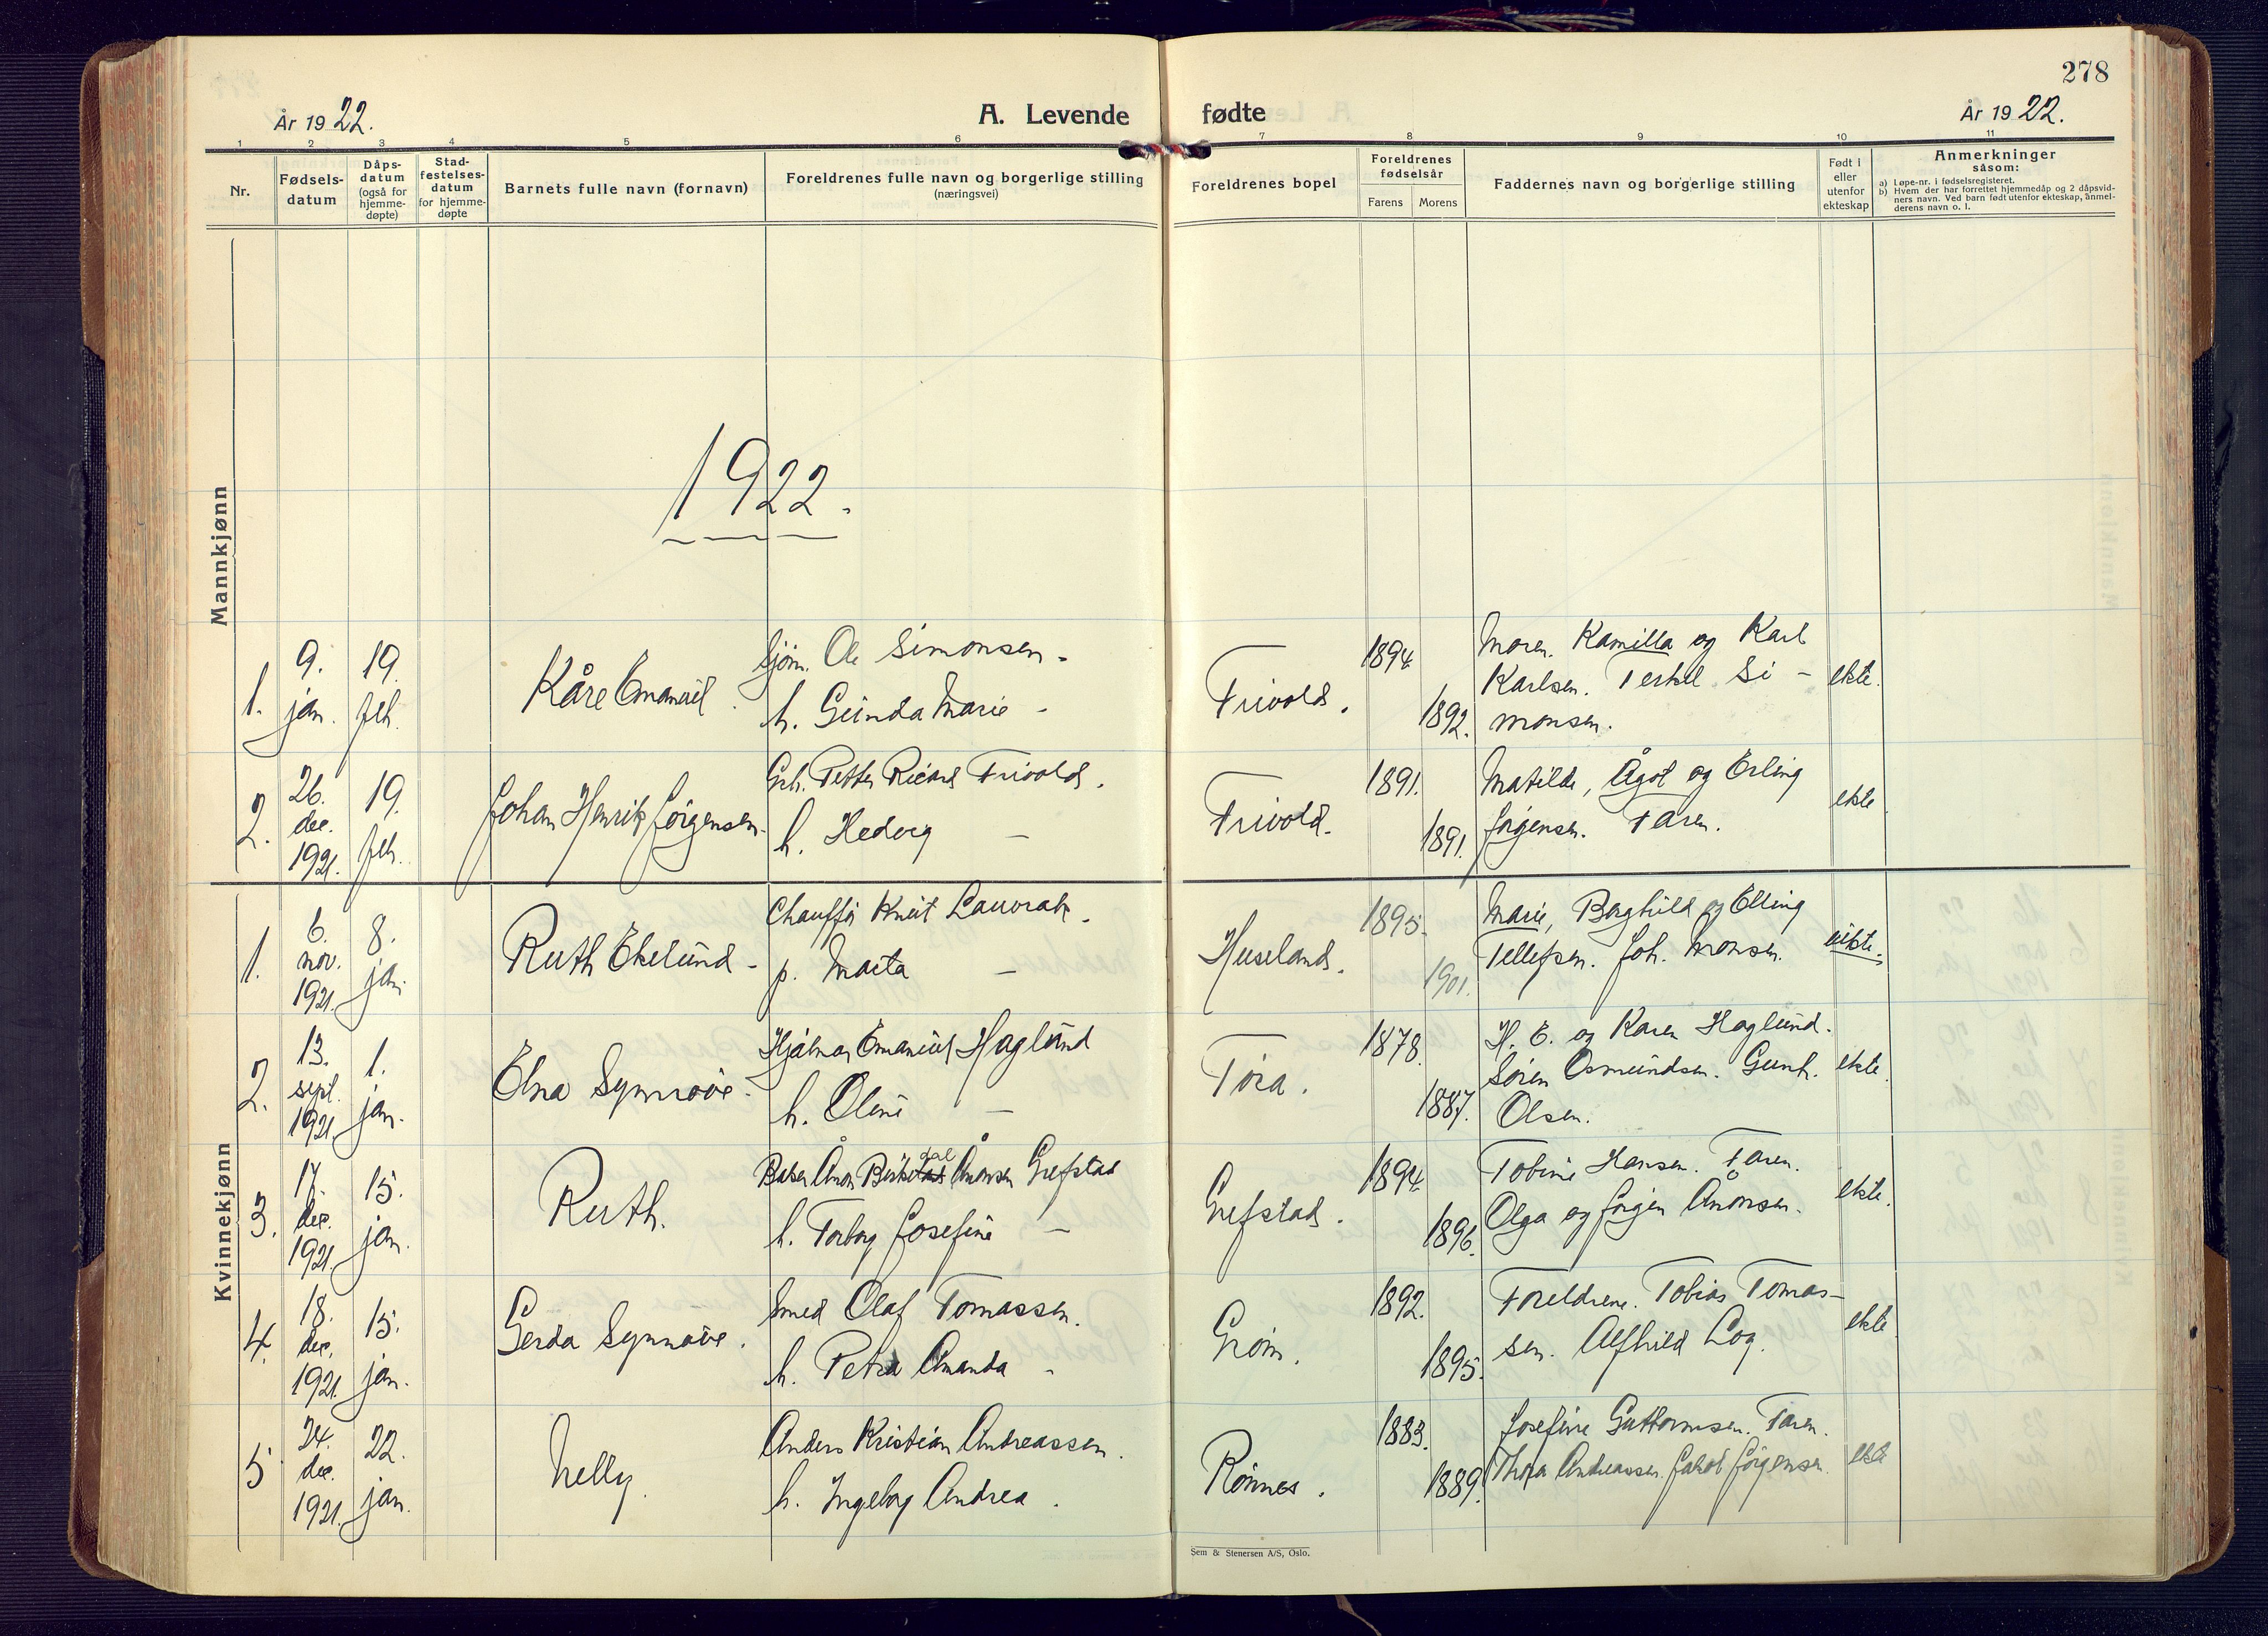 278
År 1922.
A. Levende fødte
År 1922.
1 2 3 4 5 6 7 8 9 10 11
Nr.
Fødsels-
datum
Dåps-
datum
(også for
hjemme-
døpte)
Stad-
festelses-
datum
for hjemme-
døpte
Barnets fulle navn (fornavn)
Foreldrenes fulle navn og borgerlige stilling
(næringsvei)
Foreldrenes bopel
Foreldrenes
fødselsår
Farens Morens
Faddernes navn og borgerlige stilling
Født i
eller
utenfor
ekteskap
Anmerkninger
såsom:
a) Løpe-nr. i fødselsregisteret.
b) Hvem der har forrettet hjemmedåp og 2 dåpsvid-
ners navn. Ved barn født utenfor ekteskap, anmel-
derens navn o. l.
Mannkjønn
1922.
1.
9.
jan.
19.
feb.
Kåre Emanuel.
Sjøm. Ole Simonsen -
h. Gunda Marie -
Trivold.
1894
1892.
Moren. Kamilla og Karl
Karlsen. Terkel Si-
monsen.
ekte.
2.
26.
dec.
1921.
19.
feb.
Johan Henrik Jörgensen.
Grb. Petter Rickard Trivold.
h. Hedvig —
Trivold.
1891.
1891.
Matilde, Ågot og Erling
Jörgensen. Faren.
ekte
Kvinnekjønn
1.
6.
nov.
1921.
8.
jan.
Ruth Ekelund -
Chauffør Knut Lauvrak.
p. Marta —
Huseland.
1895.
1901.
Marie, Borghild og Elling
Tellefsen. Joh. Monsen.
uekte.
2.
13.
sept.
1921
1.
jan.
Elna Synnöve -
Hjalmar Emanuel Haglund
h. Oline —
Töra.
1878.
1887.
H. E. og Karen Haglund.
Sören Osmundsen. Gunh.
Olsen.
ekte.
3.
17.
dec.
1921.
15.
jan.
Ruth.
Ånon Ånonsen Grefstad
h. Torborg Josefine —
Grefstad.
1894
1896.
Tobine Hansen. Faren.
Olga og Jörgen Ånonsen.
ekte.
4.
18.
dec.
1921.
15.
jan.
Gerda Synnöve.
Smed Olaf Tomassen.
h. Petra Amanda -
Gröm.
1892.
1895.
Foreldrene. Tobias Tomas-
sen. Alfhild Log.
ekte
5
24.
dec.
1921.
22.
jan.
Nelly.
Anders Kristian Andreassen.
h. Ingeborg Andrea.
Rönnes.
1883.
1889.
Josefine Guttormsen. Faren.
Thora Andreassen. Jakob Jörgensen.
ekte
Sem & Stenersen A/S, Oslo.